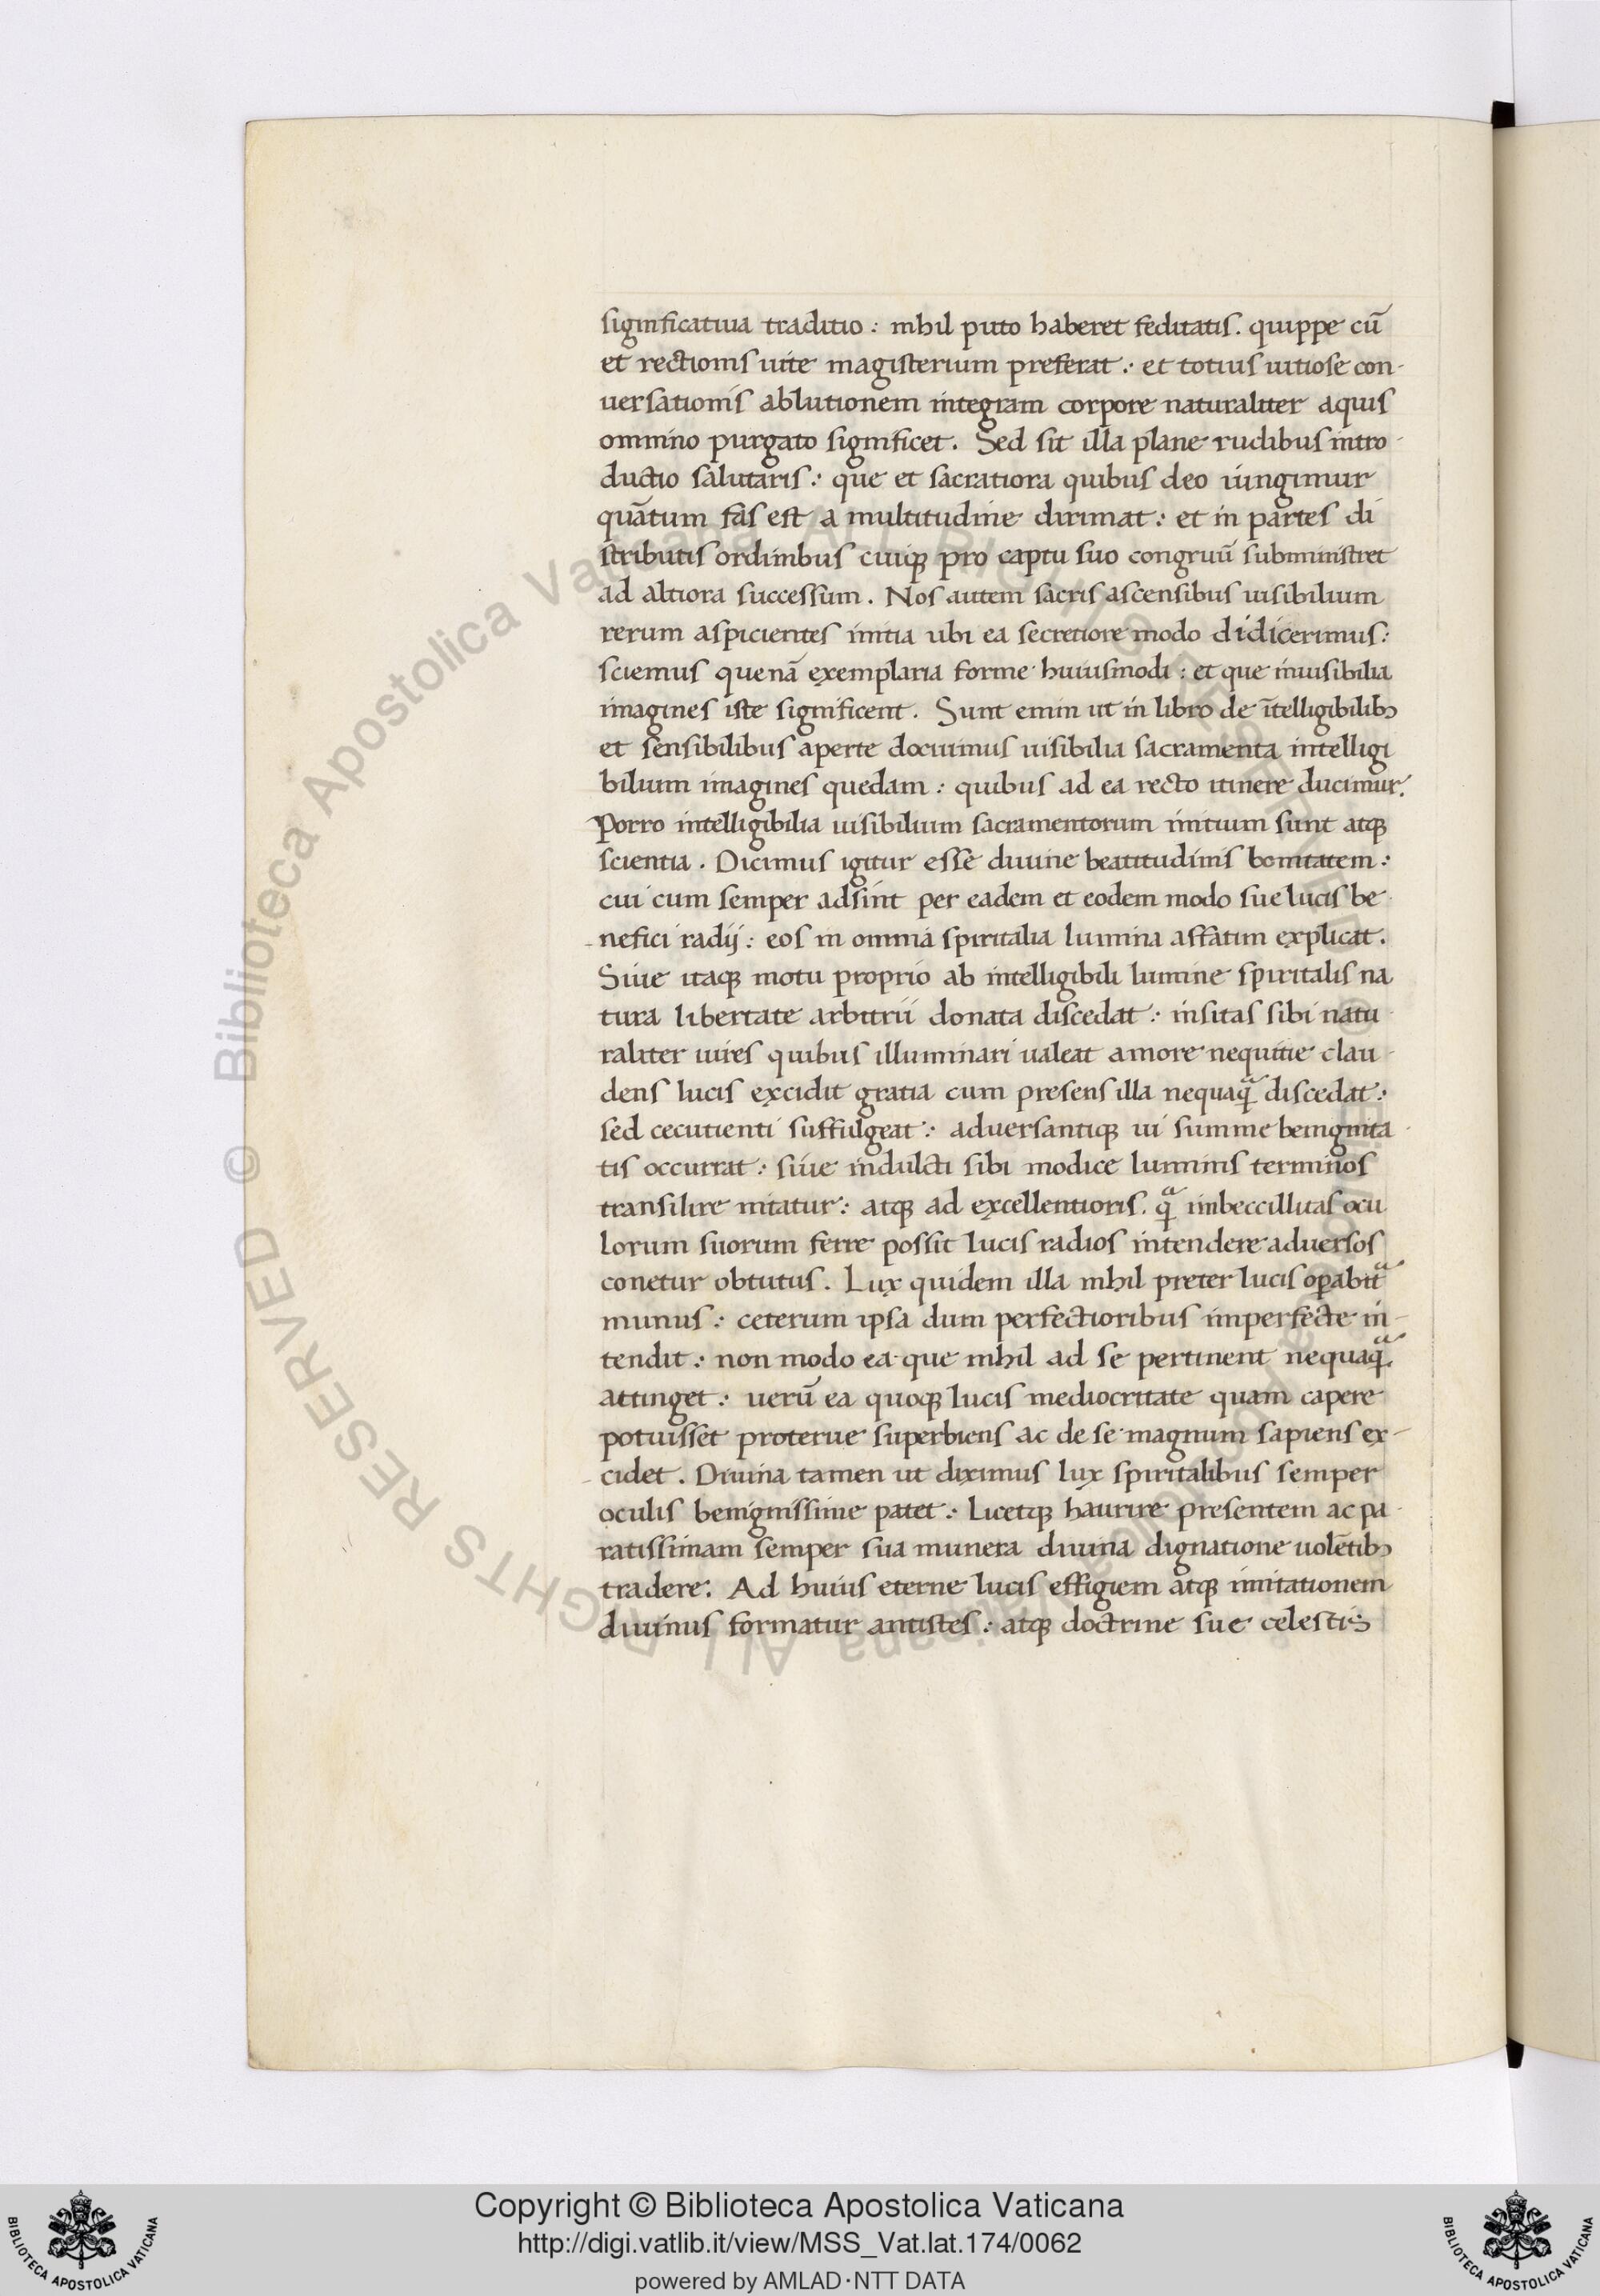 significatiua traditio : nihil puto haberet feditatis. quippe cū
et rectionis uite magisterium preferat : et totius uitiose con-
uersationis ablutionem integram corpore naturaliter aquis
omnino purgato significet. Sed sit illa plane rudibus intro-
ductio salutaris : que et sacratiora quibus deo iungimur
quātum fas est a multitudine dirimat : et in partes di
stributis ordinibus cuiqꝫ pro captu suo congruū subministret
ad altiora successum. Nos autem sacris ascensibus uisibilium
rerum aspicientes initia ubi ea secretiore modo didicerimus :
sciemus quenā exemplaria forme huiusmodi : et que inuisibilia
imagines iste significent. Sunt enim ut in libro de ītelligibilibꝫ
et sensibilibus aperte docuimus uisibilia sacramenta intelligi
bilium imagines quedam : quibus ad ea recto itinere ducimur.
Porro intelligibilia uisibilium sacramentorum initium sunt atqꝫ
scientia. Dicimus igitur esse diuine beatitudinis bonitatem :
cui cum semper adsint per eadem et eodem modo sue lucis be-
nefici radij : eos in omnia spiritalia lumina affatim explicat.
Siue itaqꝫ motu proprio ab intelligibili lumine spiritalis na
tura libertate arbitrii donata discedat : insitas sibi natu-
raliter uires quibus illuminari ualeat amore nequitie clau-
dens lucis excidit gratia cum presens illa nequaqͣ discedat :
sed cecutienti suffulgeat : aduersantiqꝫ ui summe benignita-
tis occurrat : siue indulcti sibi modice luminis terminos
transilire nitatur : atqꝫ ad excellentioris. qͣ imbeccillitas ocu
lorum suorum ferre possit lucis radios intendere aduersos
conetur obtutus. Lux quidem illa nihil preter lucis oꝑabitͣ
munus : ceterum ipsa dum perfectioribus imperfecte in-
tendit : non modo ea que nihil ad se pertinent nequaqͣ.
attinget : uerū ea quoqꝫ lucis mediocritate quam capere
potuisset proterue superbiens ac de se magnum sapiens ex-
cidet. Diuina tamen ut diximus lux spiritalibus semper
oculis benignissime patet : Licetqꝫ haurire presentem ac pa-
ratissimam semper sua munera diuina dignatione uolētibꝫ
tradere. Ad huius eterne lucis effigiem atqꝫ imitationem
diuinus formatur antistes : atqꝫ doctrine sue celestis
© Biblioteca Apostolica Vaticana ALL RIGHTS RESERVED
© Biblioteca Apostolica Vaticana ALL RIGHTS RESERVED
Copyright © Biblioteca Apostolica Vaticana
http://digi.vatlib.it/view/MSS_Vat.lat.174/0062
powered by AMLAD·NTT DATA
BIBLIOTECA APOSTOLICA VATICANA
BIBLIOTECA APOSTOLICA VATICANA